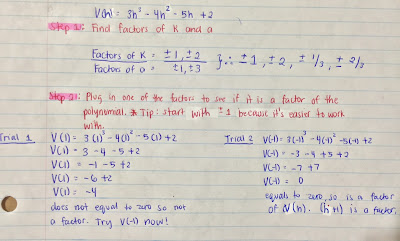 V(h) = 3h³ - 4h² - 5h + 2
Step 1: Find factors of K and a
Factors of K = ± 1, ± 2
Factors of a = ±1, ±3
} ∴ ± 1, ± 2, ± 1/3, ± 2/3
Step 2: Plug in one of the factors to see if it is a factor of the
polynomial. * Tip: start with ± 1 because it's easier to work
with.
Trial 1
V(1) = 3(1)³ - 4(1)² - 5(1) + 2
V(1) = 3 - 4 - 5 + 2
V(1) = -1 - 5 + 2
V(1) = -6 + 2
V(1) = -4
does not equal to zero so not
a factor. Try V(-1) now!
Trial 2
V(-1) = 3(-1)³ - 4(-1)² - 5(-1) + 2
V(-1) = -3 - 4 + 5 + 2
V(-1) = -7 + 7
V(-1) = 0
equals to zero, so is a factor
of V(h). (h+1) is a factor.